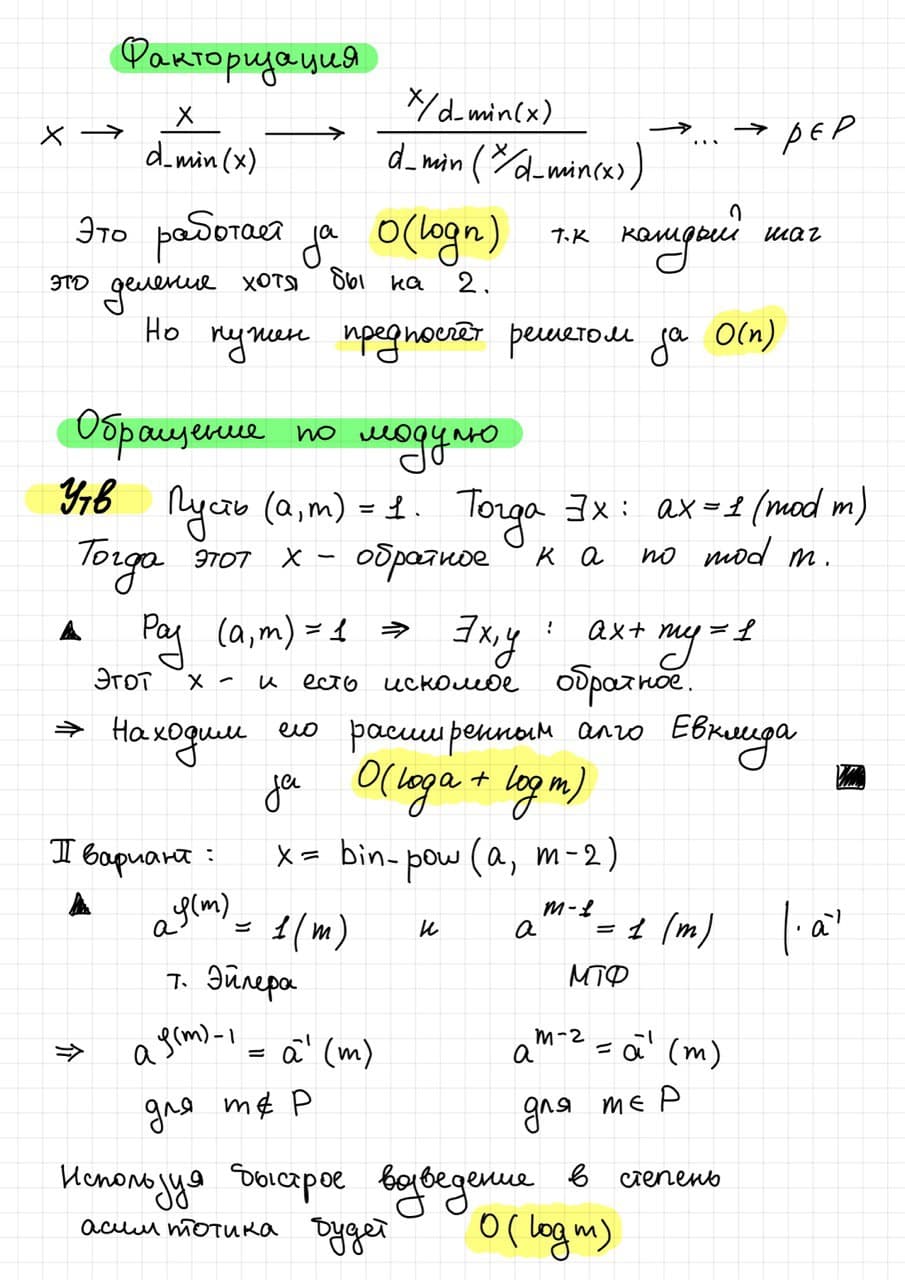 Факторизация
x → x / d_min(x) → (x/d_min(x)) / d_min(x/d_min(x)) → ... → p ∈ P
Это работает за O(log n) т.к каждый шаг
это деление хотя бы на 2.
Но нужен предпосчёт решетом за O(n)
Обращение по модулю
Утв Пусть (a,m) = 1. Тогда ∃x : ax = 1 (mod m)
Тогда этот x - обратное к a по mod m.
▲ Раз (a,m) = 1 ⇒ ∃x,y : ax + my = 1
Этот x - и есть искомое обратное.
⇒ Находим его расширенным алго Евклида
за O(log a + log m) ■
II вариант : x = bin-pow(a, m-2)
▲ a^φ(m) = 1 (m) и a^(m-1) = 1 (m) | · a^-1
т. Эйлера МТФ
⇒ a^(φ(m)-1) = a^-1 (m) a^(m-2) = a^-1 (m)
для m ∉ P для m ∈ P
Используя быстрое возведение в степень
асимптотика будет O(log m)